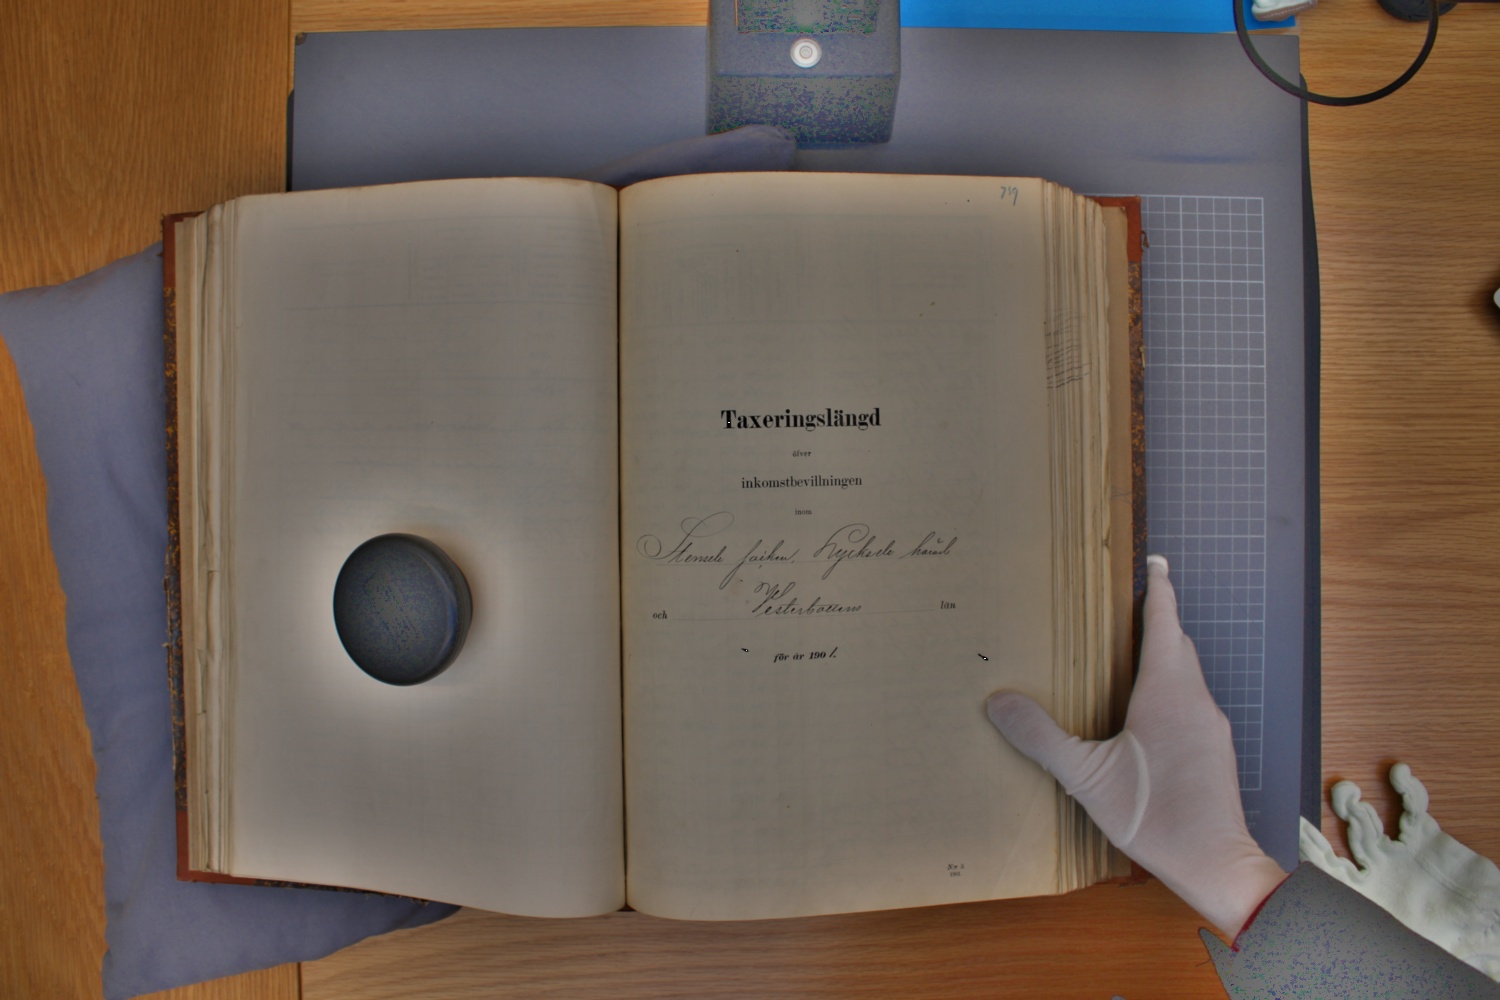 719
Taxeringslängd
öfver
inkomstbevillningen
inom
Stensele socken, Lycksele härad
och Vesterbottens län
för år 1901.
N:o 5.
1901.